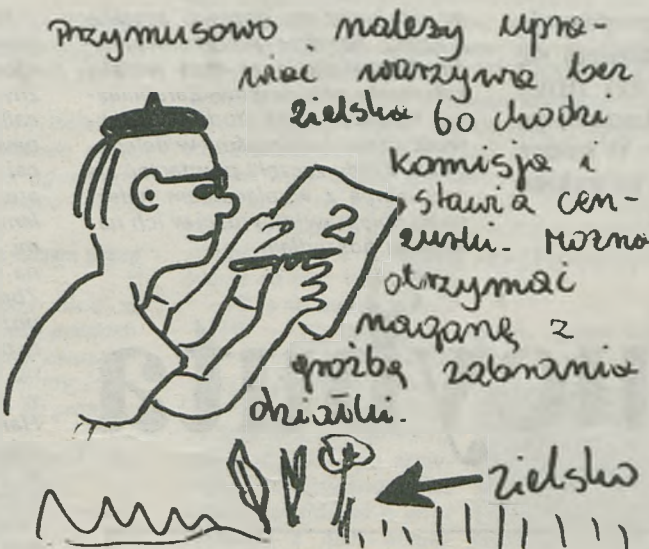 Przymusowo należy upra-
wiać warzywa bez
zielska bo chodzi
komisja i
stawia cen-
zurki. Można
otrzymać
naganę z
groźbą zabrania
działki.
2
zielsko